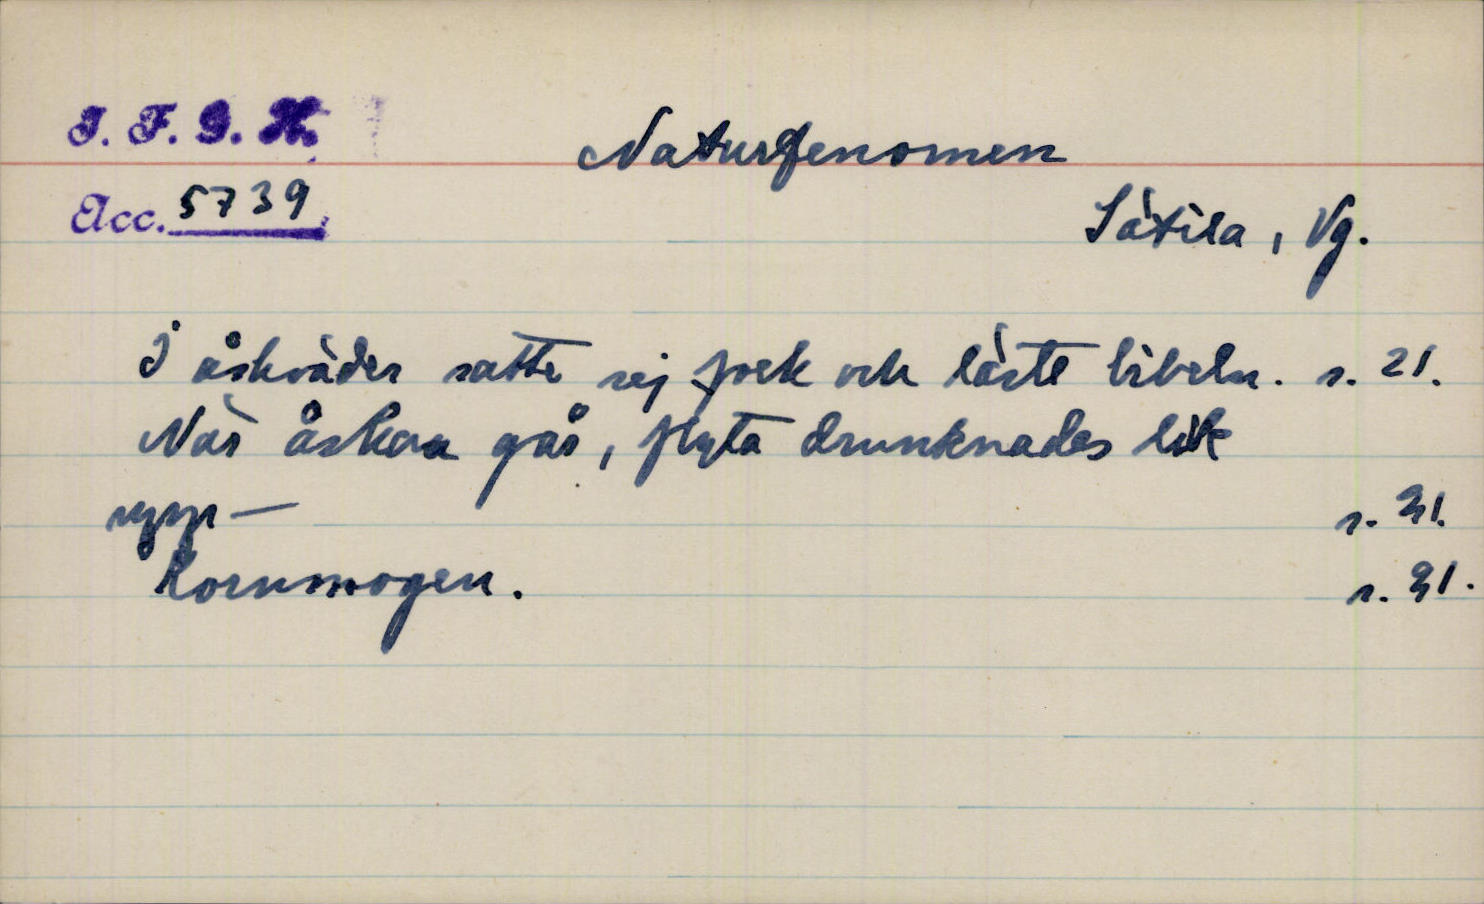 I. F. G. H.
Naturfenomen
Acc. 5739
Sätila, Vg.
I åskväder satte sej folk och läste bibeln. s. 21.
När åskan går, flyta drunknades lik
upp — s. 21.
Kornmogen. s. 21.